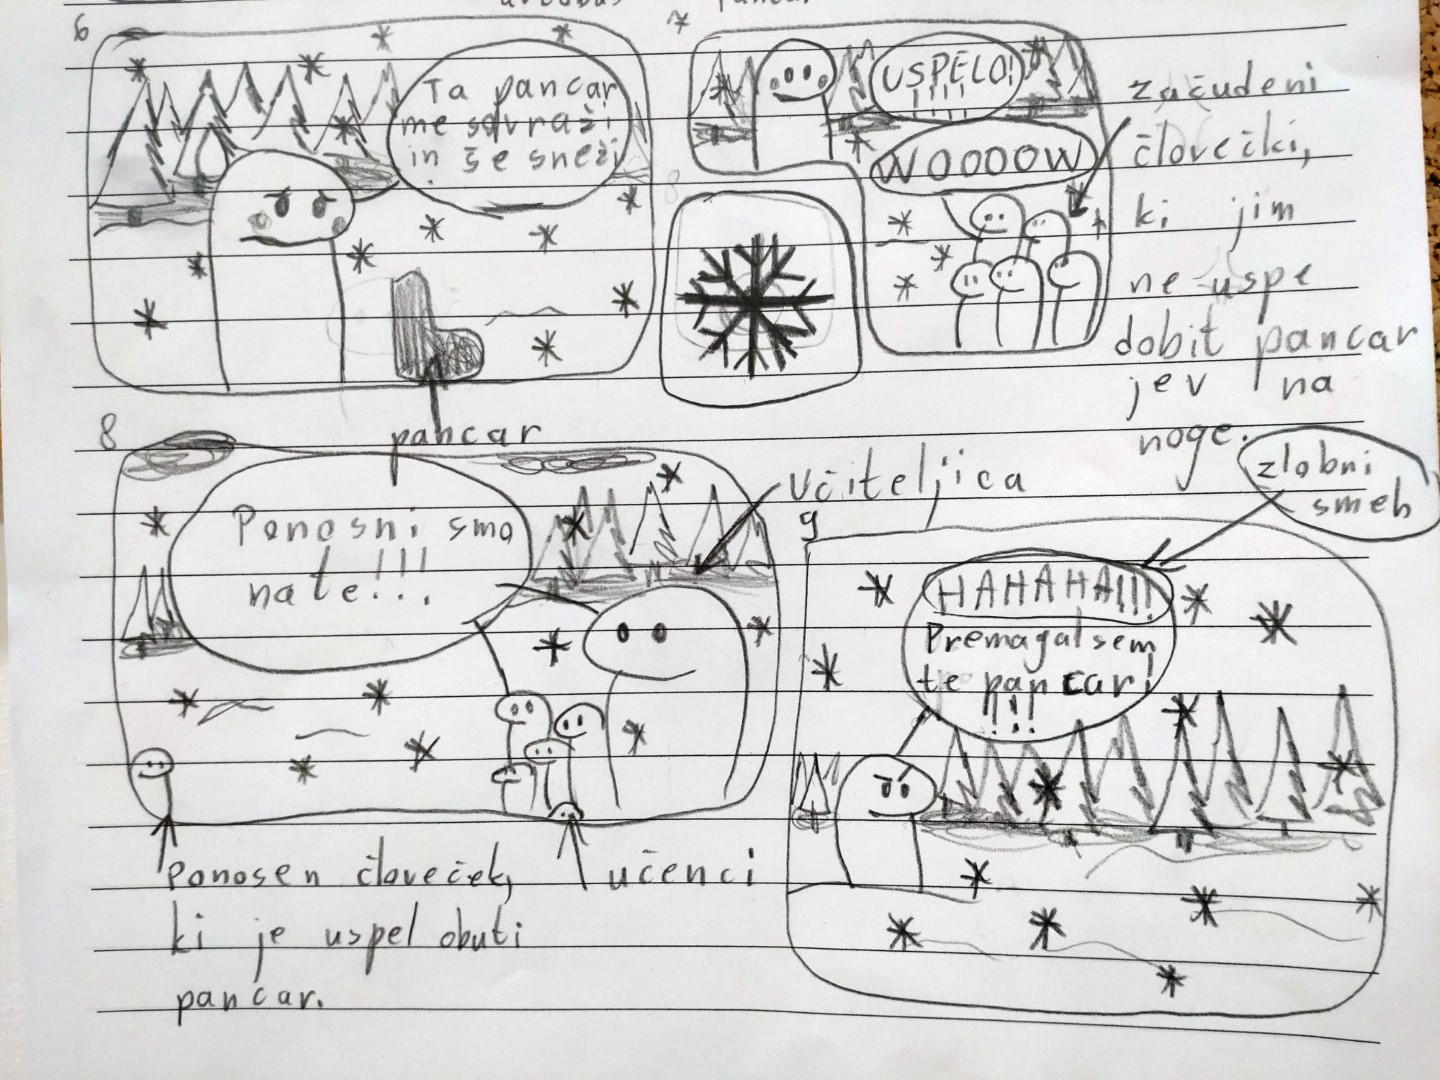 6
Ta pancar
me sovraži
in še sneži
pancar
7
USPELO!
!!!!
WOOOOW
začudeni
človečki,
ki jim
ne uspe
dobit pancar
jev na
noge.
8
Ponosni smo
nate!!!
učiteljica
Ponosen človeček,
ki je uspel obuti
pancar.
učenci
9
zlobni
smeh
HAHAHA!!!
Premagal sem
te pancar!
!!!